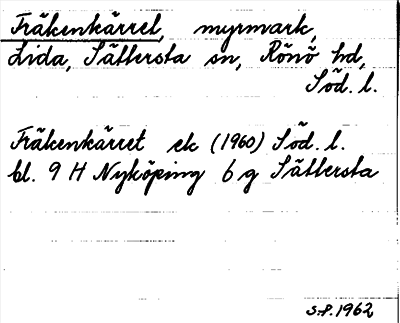 Fräkenkärret, myrmark,
Lida, Sättersta sn, Rönö hd,
Söd. l.
Fräkenkärret ek (1960) Söd. l.
bl. 9 H Nyköping 6 g Sättersta
S.P. 1962